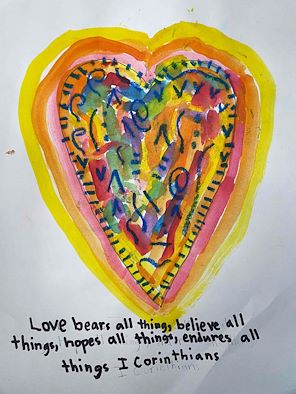 Love bears all things, believe all
things, hopes all things, endures all
things I Corinthians
I Corinthians